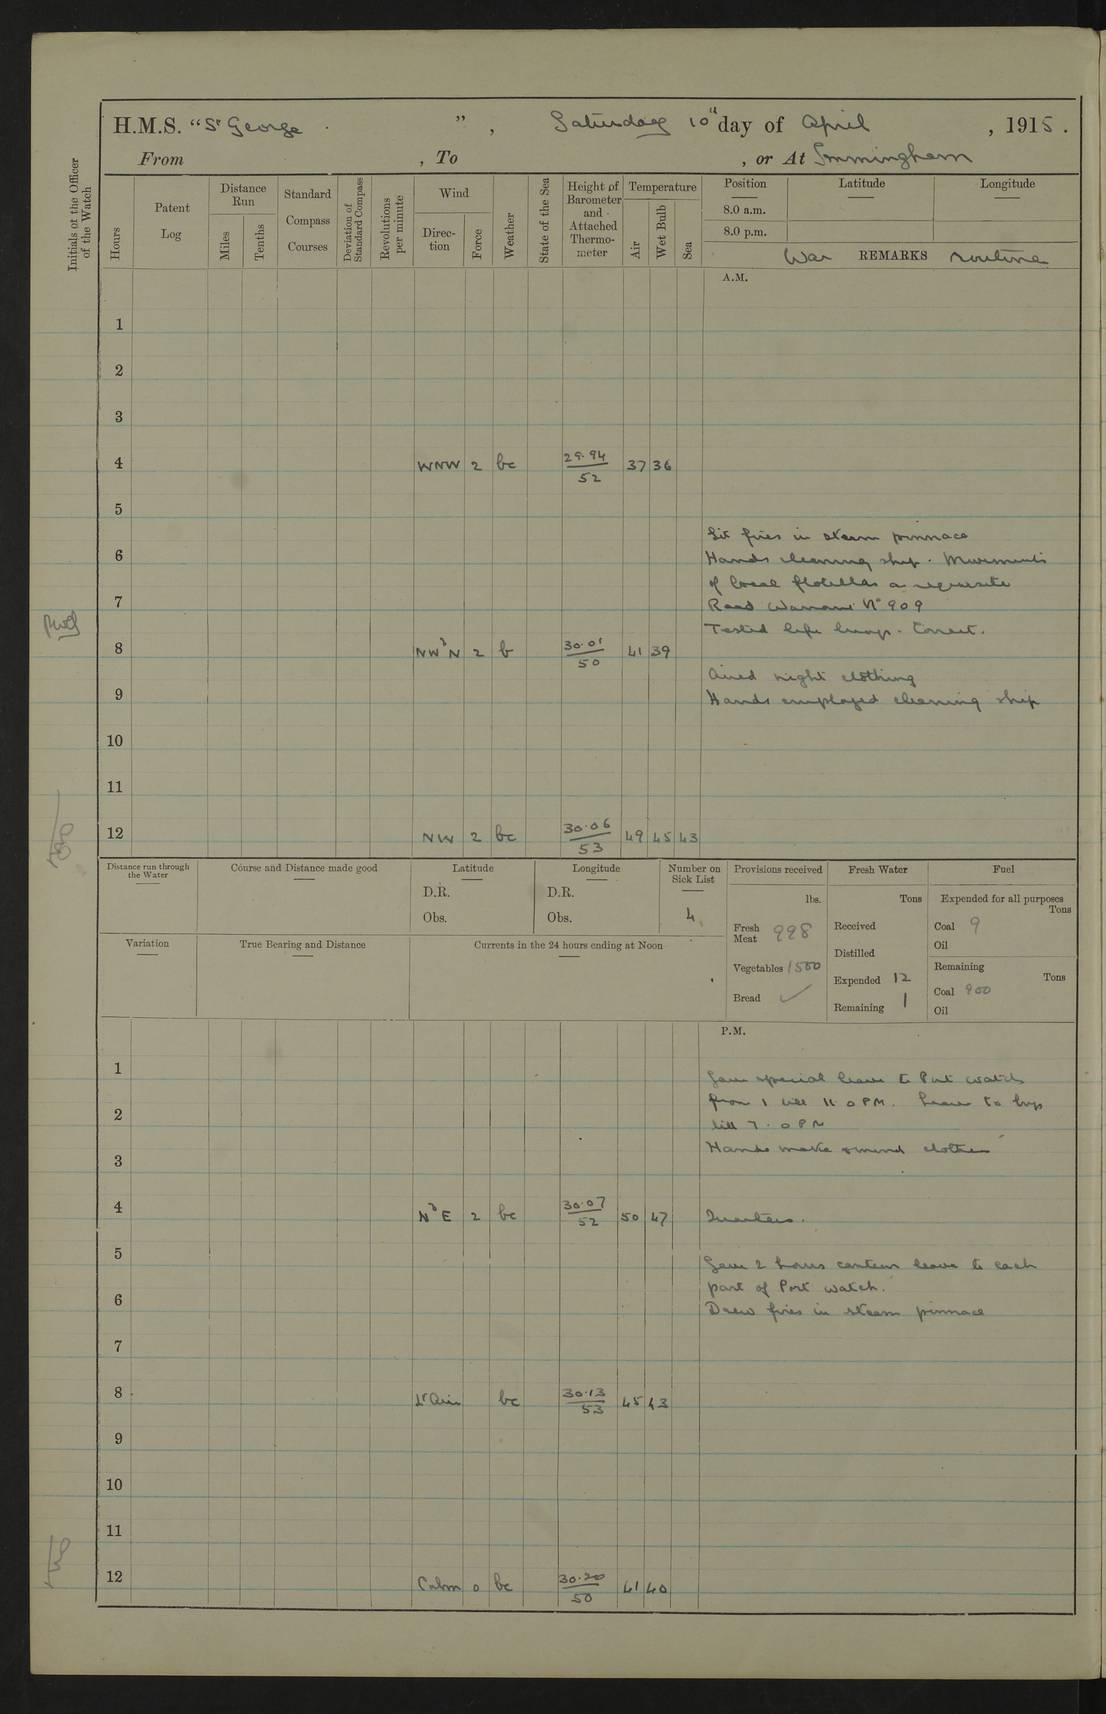 H.M.S. "St George ", Saturday 10th day of April, 1915.
From , To , or At Immingham
Initials of the Officer of the Watch
Hours
Patent Log
Distance Run
Miles
Tenths
Standard Compass Courses
Deviation of Standard Compass
Revolutions per minute
Wind
Direction
Force
Weather
State of the Sea
Height of Barometer and Attached Thermometer
Temperature
Air
Wet Bulb
Sea
Position Latitude Longitude
8.0 a.m.
8.0 p.m.
War REMARKS routine
A.M.
1
2
3
4 WNW 2 bc 29.94 52 37 36
5
Lit fires in steam pinnace
6 Hands cleaning ship. Movements
of local flotillas as requisite
7 Read Warrant No 909
Tested life buoys. Correct.
8 NWbN 2 b 30.01 50 41 39
Aired night clothing
9 Hands employed cleaning ship
10
11
12 NW 2 bc 30.06 53 49 45 43
Distance run through the Water
Course and Distance made good
Latitude
D.R.
Obs.
Longitude
D.R.
Obs.
Number on Sick List
4
Provisions received
lbs.
Fresh Meat 998
Vegetables 1500
Bread ✓
Fresh Water
Tons
Received
Distilled
Expended 12
Remaining 1
Fuel
Expended for all purposes
Tons
Coal 9
Oil
Remaining
Tons
Coal 900
Oil
Variation
True Bearing and Distance
Currents in the 24 hours ending at Noon
P.M.
1 Gave special leave to Port watch
2 from 1 till 11.0 PM. Leave to boys
till 7.0 PM
3 Hands make & mend clothes
4 NbE 2 bc 30.07 52 50 47 Quarters.
5 Gave 2 hours canteen leave to each
part of Port watch.
6 Drew fires in steam pinnace
7
8 Lt Airs bc 30.13 53 45 43
9
10
11
12 Calm 0 bc 30.20 50 41 40